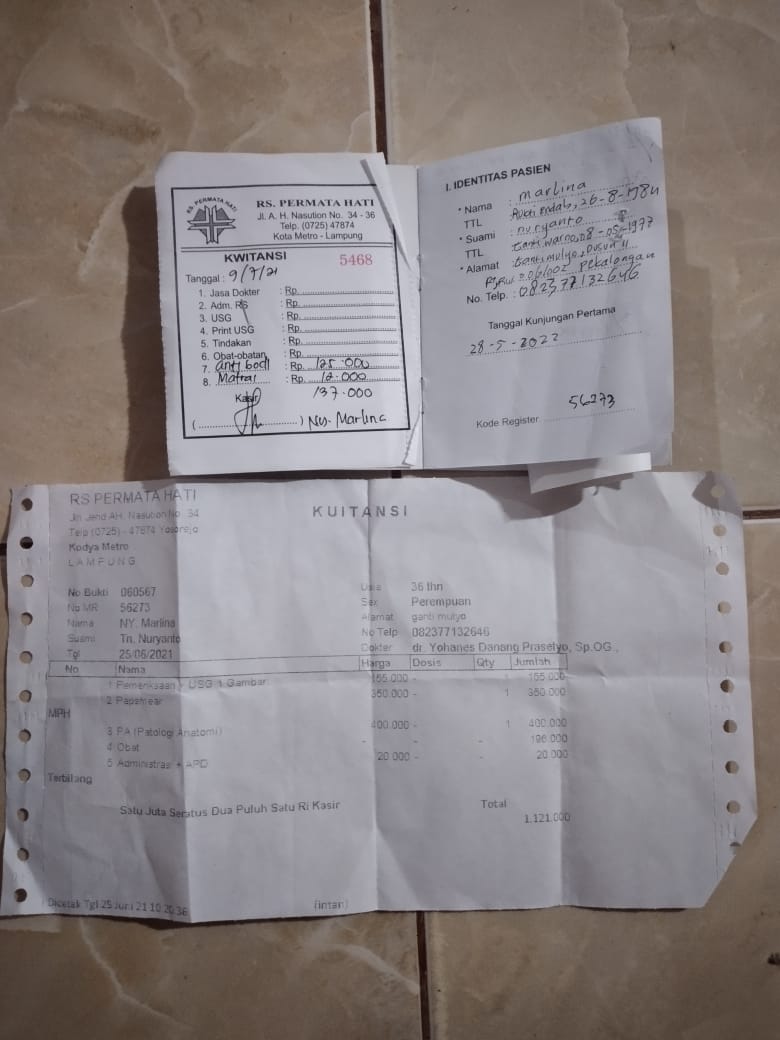 RS. PERMATA HATI
RS. PERMATA HATI
Jl. A. H. Nasution No. 34 - 36
Telp. (0725) 47874
Kota Metro - Lampung
KWITANSI
5468
Tanggal : 9/7/21
1. Jasa Dokter : Rp.
2. Adm. RS : Rp.
3. USG : Rp.
4. Print USG : Rp.
5. Tindakan : Rp.
6. Obat-obatan : Rp.
7. anti bodi : Rp. 125.000
8. Matrai : Rp. 12.000
Kasir 137.000
( ) Ny. Marlina
I. IDENTITAS PASIEN
* Nama : Marlina
TTL : 26-8-1984
* Suami : nuryanto
TTL : 08-05-1977
* Alamat : Ganti mulyo, Dusun II
Pekalongan
No. Telp. : 082377132646
Tanggal Kunjungan Pertama
28-5-2022
Kode Register 56273
RS PERMATA HATI
KUITANSI
Jln Jend AH. Nasution No. 34
Telp (0725) - 47874 Yosorejo
Kodya Metro
LAMPUNG
No Bukti 060567
No MR 56273
Nama NY. Marlina
Suami Tn. Nuryanto
Tgl 25/06/2021
Usia 36 thn
Sex Perempuan
Alamat ganti mulyo
No Telp 082377132646
Dokter dr. Yohanes Danang Prasetyo, Sp.OG.,
No. Nama Harga Dosis Qty Jumlah
1 Pemeriksaan + USG 1 Gambar 155.000 - 155.000
2 Papsmear 350.000 - 1 350.000
MPH
3 PA (Patologi Anatomi) 400.000 - 1 400.000
4 Obat - - 196.000
5 Administrasi + APD 20.000 - - 20.000
Terbilang
Satu Juta Seratus Dua Puluh Satu Ri Kasir
Total
1.121.000
Dicetak Tgl 25 Juni 21 10:20:36
(intan)